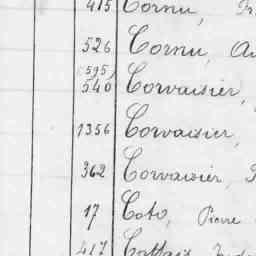 415 Cornu,
526 Cornu,
(595)
540 Corvaisier,
1356 Corvaisier,
362 Corvaisier,
17 Coto, Pierre
417